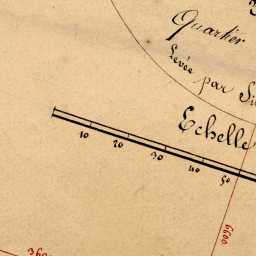 Quartier
Levée par
Echelle
10 20 30 40 50
6600